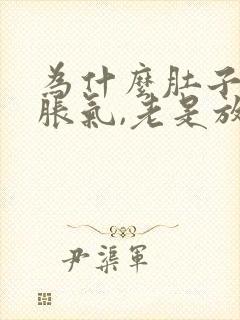 为什麽肚子
脹氣,老是放
尹渠軍